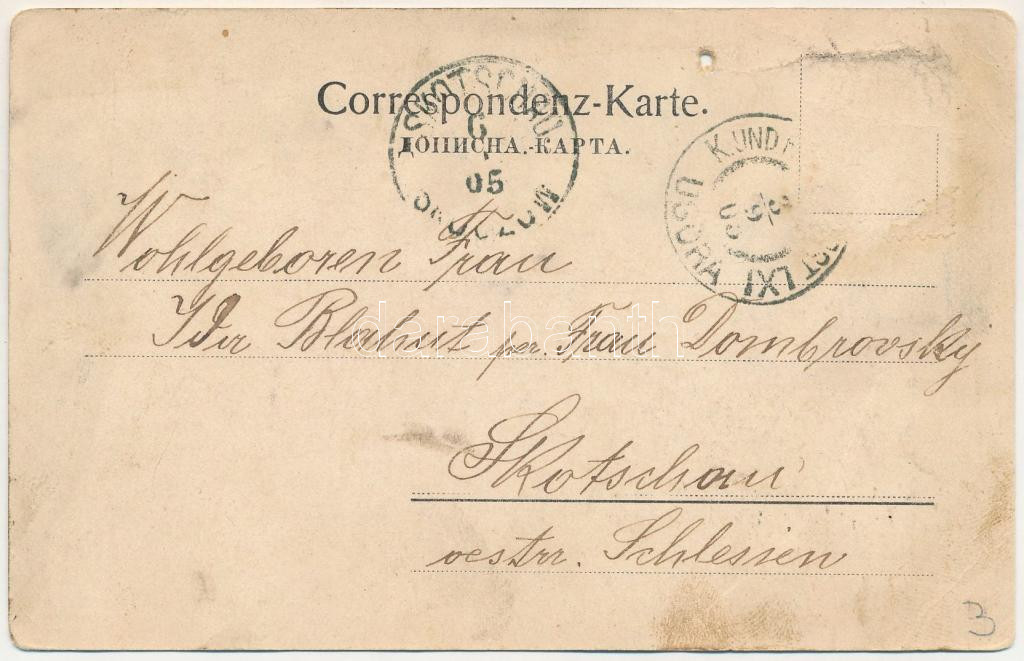 Correspondenz-Karte.
ДОПИСНА.-КАРТА.
SKOTSCHAU
6
05
SKOCZÓW
K.UND
LXI
UJSORA
Wohlgeboren Frau
Ida Blahut per. Frau Dombrovsky
Skotschau
oestrr. Schlesien
3
darabanth